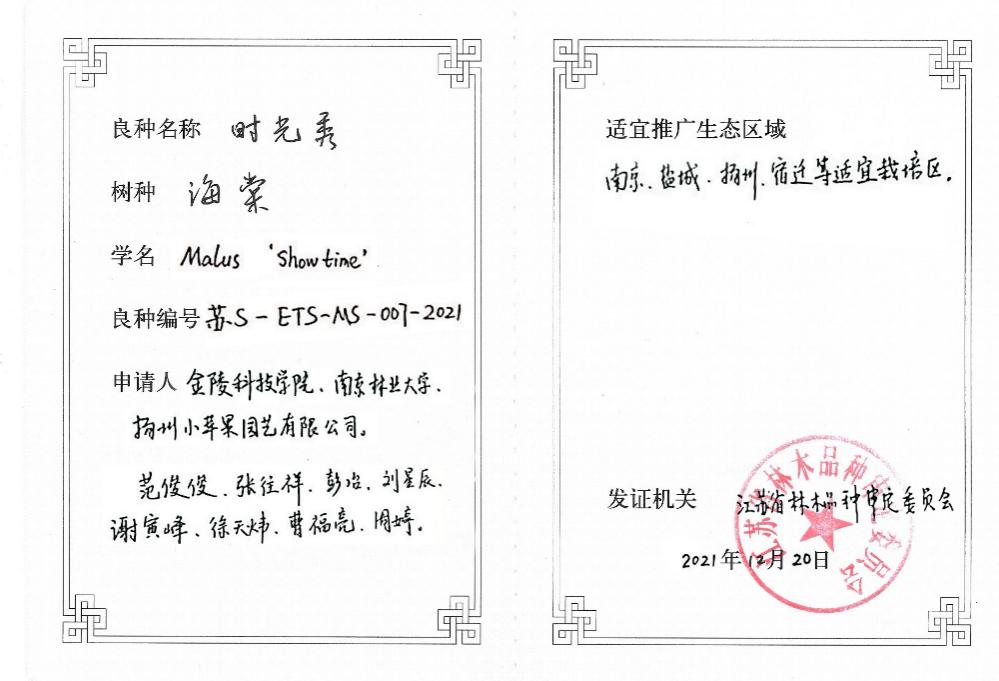 良种名称 时光秀
树种 海棠
学名 Malus 'Showtime'
良种编号 苏S-ETS-MS-007-2021
申请人 金陵科技学院、南京林业大学、
扬州小苹果园艺有限公司。
范俊俊、张往祥、彭冶、刘星辰、
谢寅峰、徐天炜、曹福亮、周婷。
适宜推广生态区域
南京、盐城、扬州、宿迁等适宜栽培区。
发证机关 江苏省林木品种审定委员会
2021年12月20日
江苏省林木品种审定委员会